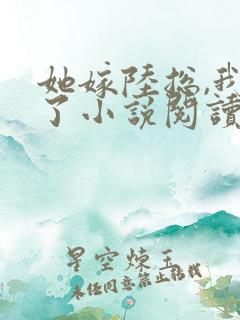 她嫁陸總,我
了小說閱讀
星空煉玉
未经同意禁止转载